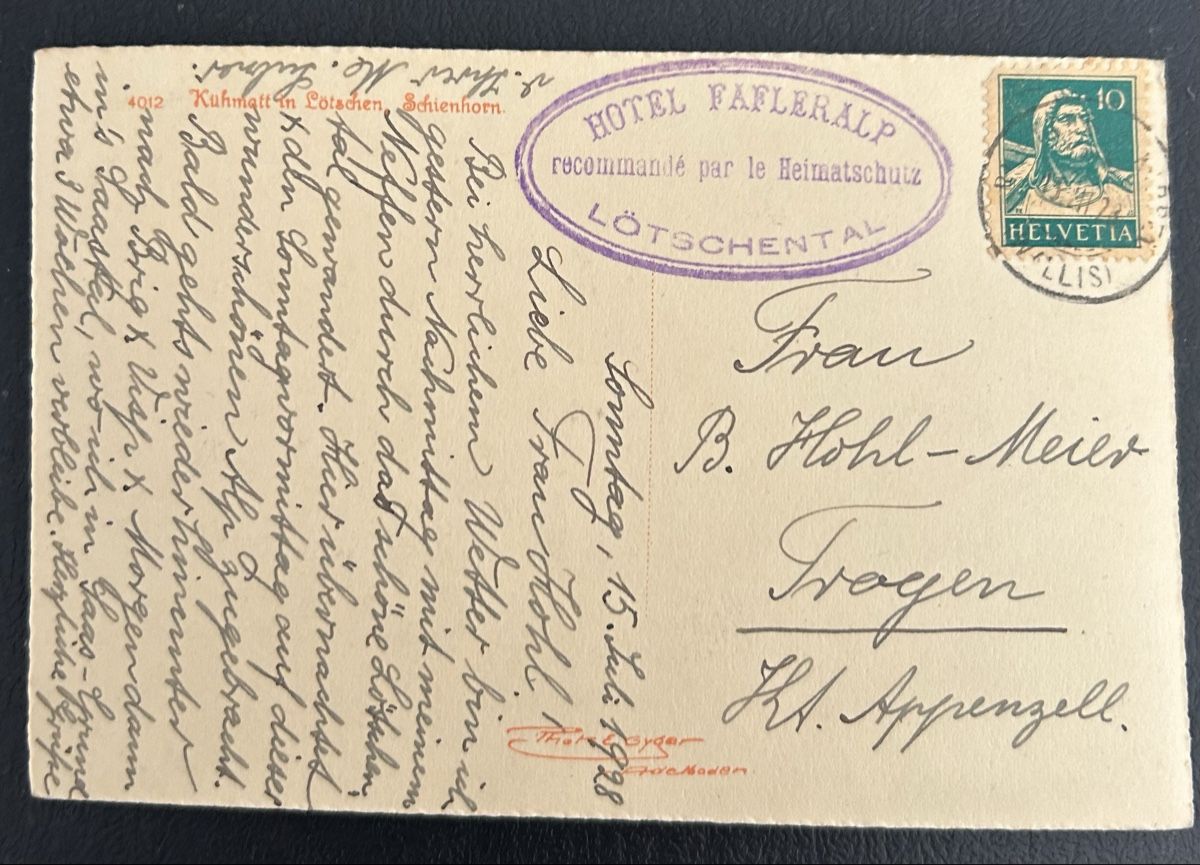 4012 Kühmatt in Lötschen, Schienhorn.
HOTEL FAFLERALP
recommandé par le Heimatschutz
LÖTSCHENTAL
10
HELVETIA
Frau
B. Hohl-Meier
Trogen
Kt. Appenzell.
Sonntag, 15. Juli 1928
Liebe Frau Hohl!
Bei herrlichem Wetter bin ich
gestern Nachmittag mit meinem
Neffen durch das schöne Lötschen-
tal gewandert. Hier übernachtet
& den Sonntagvormittag auf dieser
wunderschönen Alp zugebracht.
Bald gehts wieder hinunter
nach Brig & Visp & Morgen dann
in's Saastal, wo ich in Saas-Grund
etwa 3 Wochen verbleibe. Herzliche Grüße
v. Ihrer
Phot. E. Gyger
Adelboden